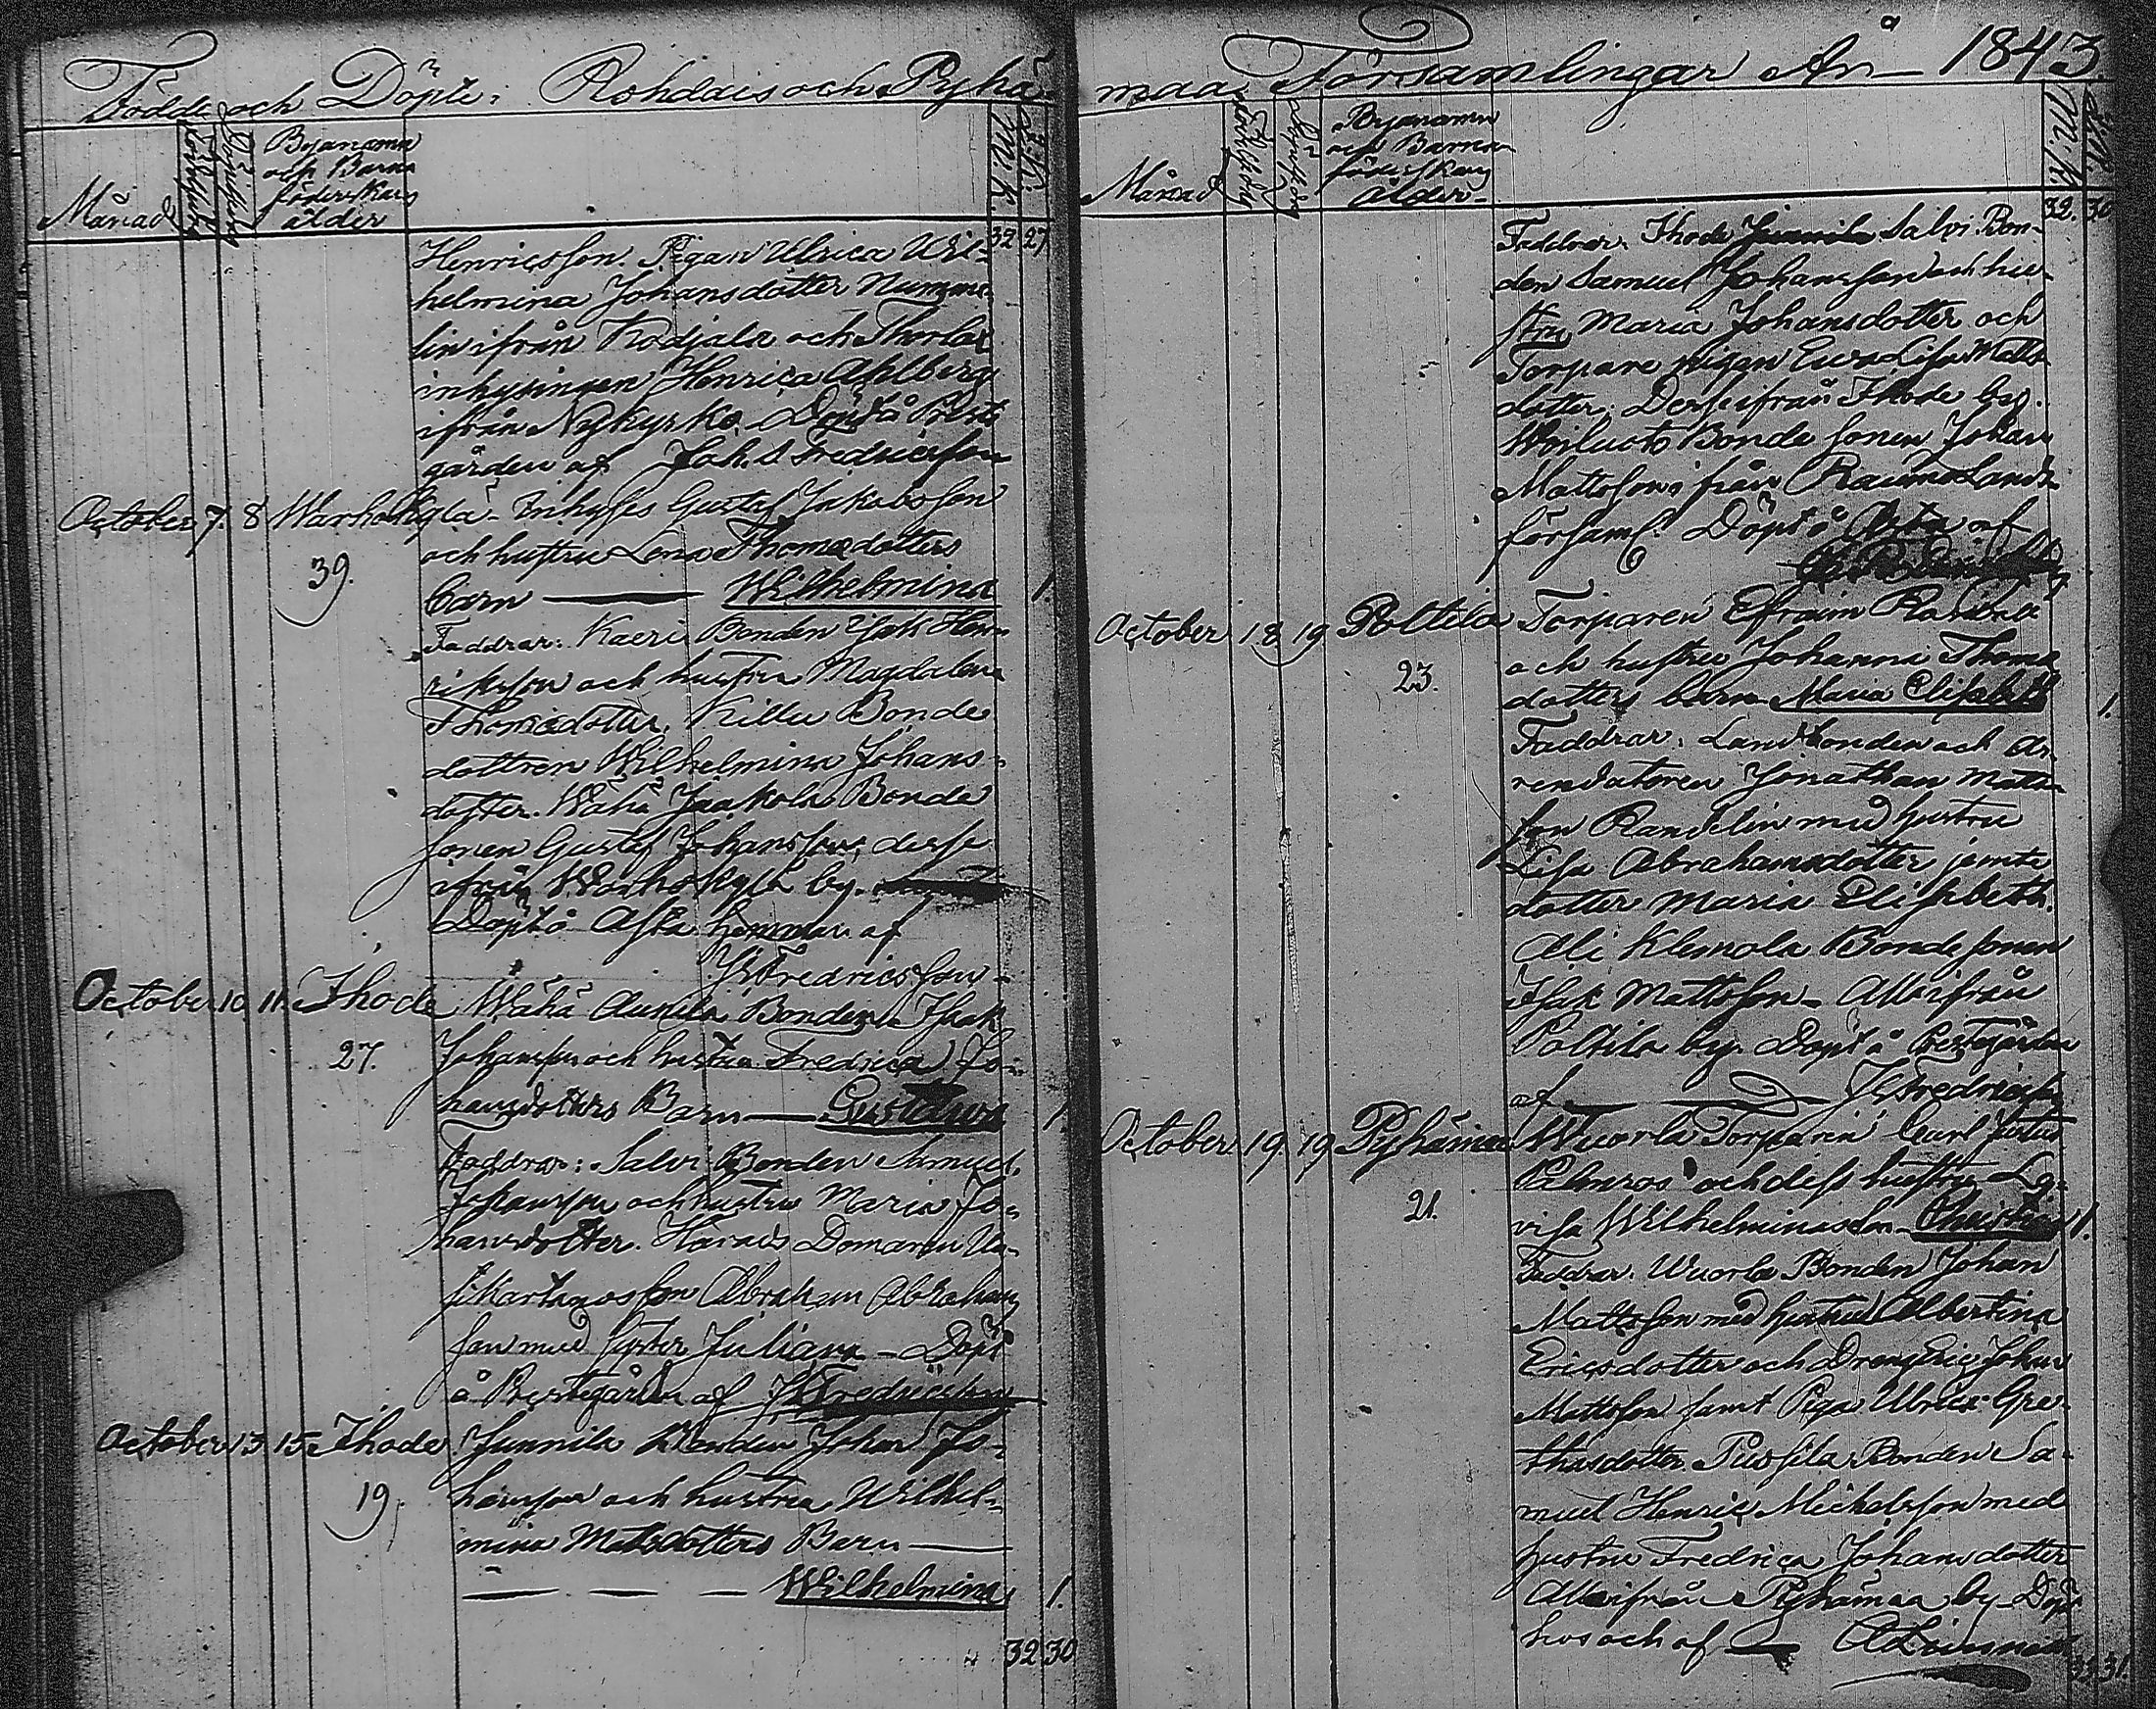 Födde och Döpte i Rohdais och Pyhä
Månad
Byanamn
och Barna
föderskans
ålder
M.K.
Q.K.
32 27
Henricsson. Pigan Ulrica Wil-
helmina Johansdotter Numme-
lin ifrån Kodjala och
inhysingen Henrica Ahlberg
ifrån Nykyrko. Döpt å Prest-
gården af Joh. S Fredricsson
October 7. 8 Warhokylä - Inhyses Gustaf Jakobsson
och hustru Lena Thomasdotters
39.
barn — Wilhelmina 1.
Faddrar: Kaeri Bonden Isak Hen-
riksson och hustru Magdalena
Thomasdotter. Killu Bonde
dottren Wilhelmina Johans-
dotter. Wähä Jaakola Bonde
sonen Gustaf Johansson, desse
ifrån Warhokylä by.
Döpt å hemman af
JS Fredricsson
October 10. 11. Ihode Wähä Aukila Bonden Isaak
27. Johansson och hustru Fredrica Jo-
hansdotters Barn — Gustava 1.
Faddrar: Salvi Bonden Samuel
Johansson och hustru Maria Jo-
hansdotter. Härads Domaren
Abraham Abrahams
son med syster Juliana - Döpt
å Prestegården af JS Fredricsson
October 13 15 Ihode Junnila Bonden Johan Jo-
19. hansson och hustru Wilhel-
mina Matsdotters Barn —
— — — Wilhelmina 1.
32 30
maa Församlingar År 1843
Månad
Byanamn
och Barna
föderskans
ålder
M.K.
Q.K.
32. 30
Faddrar. Ihode Junnila Salvi Bon-
den Samuel Johansson och hu-
stru Maria Johansdotter och
Torpare pigan Eva Lisa Matts-
dotter; Desse ifrån Ihode by.
Bonde sonen Johan
Mattsson ifrån Raumo Lands
församl. Döpt å af
October 18 19 Poltila Torparen Efraim
och hustru Johanna Thomas
23.
dotters barn Maria Elisabeth 1.
Faddrar: Landbonden och Ar-
rendatoren Jonathan Matts-
son Randelin med hustru
Lisa Abrahamsdotter jemte
dotter Maria Elisabeth.
Ali Klemola Bondesonen
Isak Mattsson - Alla ifrån
Poltila by. Döpt å Prestegården
af — JS Fredricsson
October 19. 19 Pyhämaa Wuorla Torparen Carl Justus
Palmros och dess hustru Lo-
21.
visa Wilhelminas Christina 1.
Faddrar. Wuorla Bonden Johan
Mattsson med hustru Albertina
Ericsdotter och Dreng Eric Johan
Mattsson samt Piga Ulrica Gre-
thasdotter. Bonden Sa-
muel Henric Michelsson med
hustru Fredrica Johansdotter
Alla ifrån Pyhämaa by - Döpt
hos och af —
31.